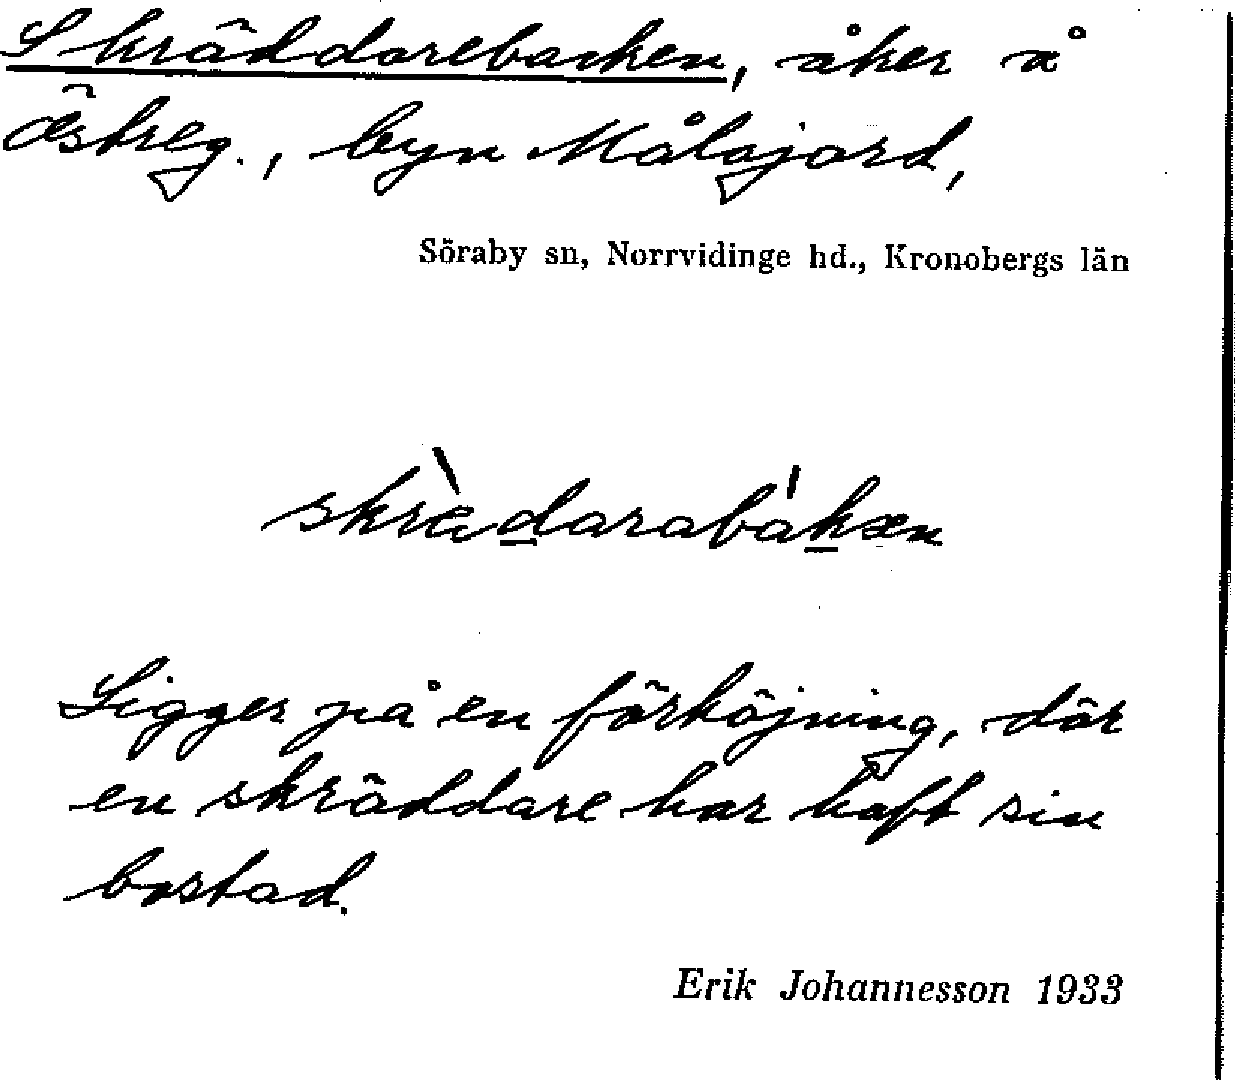 Skräddarebacken, åker å
Östreg., byn Målajord,
Söraby sn, Norrvidinge hd., Kronobergs län
Ligger på en förhöjning, där
en skräddare har haft sin
bostad.
Erik Johannesson 1933